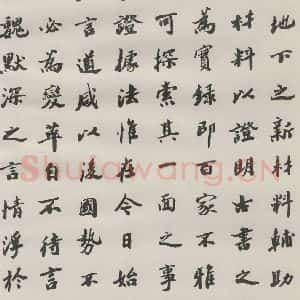 地下之新材料輔助
材料以證明古書之
為實錄即百家不雅
可探索其一面之事
證據法惟在今日始
言道咸以後國勢不
必為變革自不待言
魏默深之言情淨於
Shufawang.CN